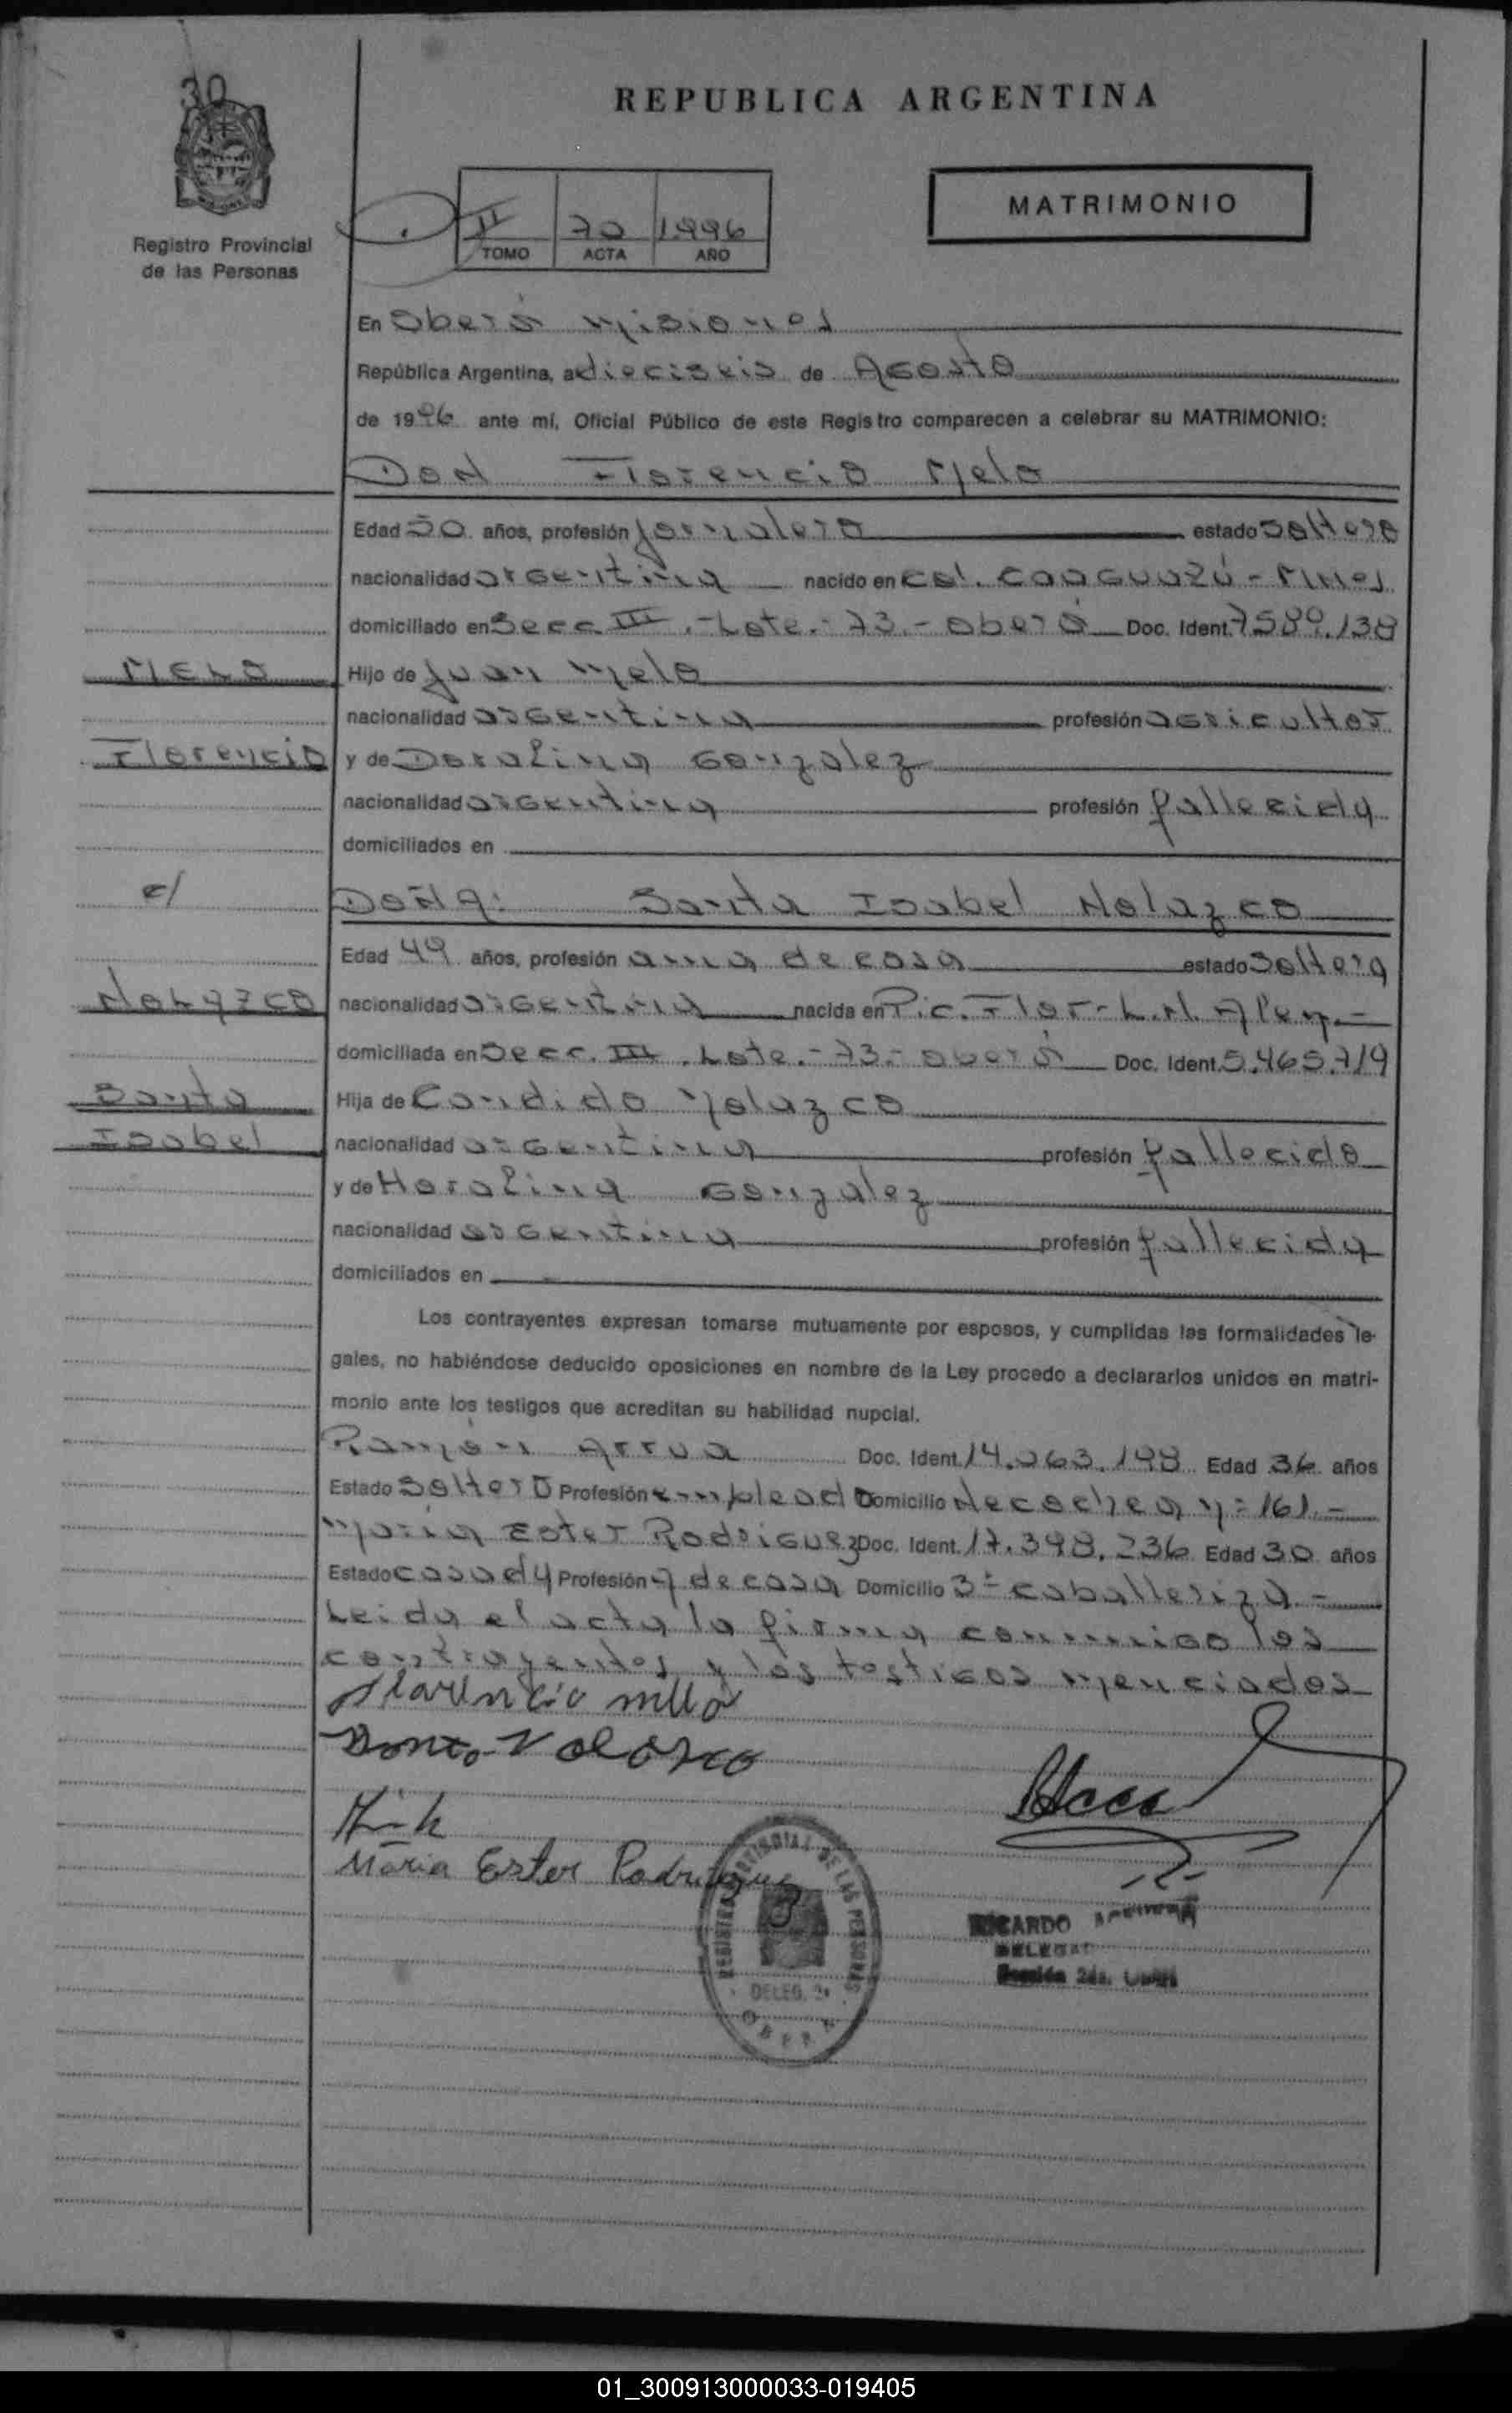 30
REPUBLICA ARGENTINA
MATRIMONIO
Registro Provincial
de las Personas
II 70 1996
TOMO ACTA AÑO
En Oberá Misiones
República Argentina, a dieciseis de Agosto
de 1996 ante mí, Oficial Público de este Registro comparecen a celebrar su MATRIMONIO:
Don Florencio Melo
Edad 50 años, profesión jornalero estado soltero
nacionalidad argentina nacido en Col. Caaguazú - Mnes
domiciliado en Secc III.- Lote.- 73.- Oberá Doc. Ident. 7580.138
MELO Hijo de Juan Melo
nacionalidad argentina profesión agricultor
Florencio y de Doralina Gonzalez
nacionalidad argentina profesión fallecida
domiciliados en
c/ Doña: Santa Isabel Nolazco
Edad 49 años, profesión ama de casa estado soltera
Nolazco nacionalidad argentina nacida en Pic. Flor - L.N. Alem.-
domiciliada en Secc. III. Lote.- 73.- Oberá Doc. Ident. 5.465.719
Santa Hija de Candido Nolazco
Isabel nacionalidad argentina profesión fallecido
y de Horalina Gonzalez
nacionalidad argentina profesión fallecida
domiciliados en
Los contrayentes expresan tomarse mutuamente por esposos, y cumplidas las formalidades le-
gales, no habiéndose deducido oposiciones en nombre de la Ley procedo a declararlos unidos en matri-
monio ante los testigos que acreditan su habilidad nupcial.
Ramón Arrua Doc. Ident. 14.063.198 Edad 36 años
Estado Soltero Profesión empleado Domicilio Necochea n= 161.-
Maria Ester Rodriguez Doc. Ident. 17.398.236 Edad 30 años
Estado casada Profesión A de casa Domicilio 3= caballeriza.-
Leida el acta la firma conmigo los
contrayentes y los testigos menciados
Florencio mello
Santa Nolasco
Maria Ester Rodriguez
REGISTRO PROVINCIAL DE LAS PERSONAS
DELEG. 2a
OBERA
RICARDO
DELEGADO
Sección 2da. Oberá
01_300913000033-019405